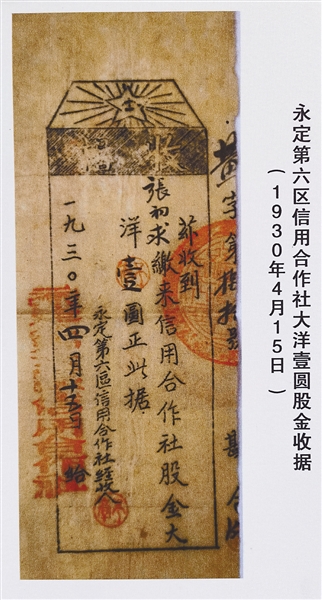 永定第六区信用合作社大洋壹圆股金收据
（1930年4月15日）
字第拾號
收據
茲收到
張初求繳来信用合作社股金大
洋壹圓正此據
永定第六區信用合作社經收人
一九三〇年四月十五日給